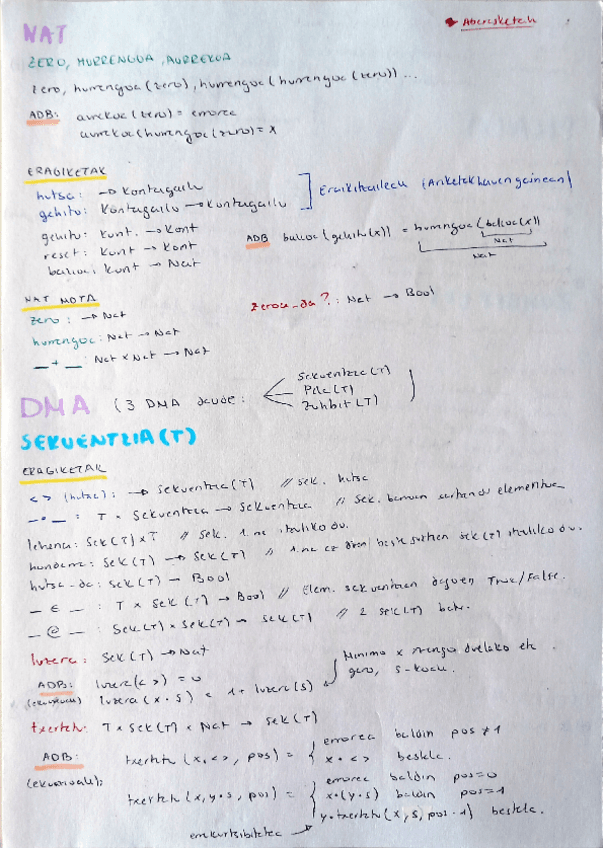 NAT
Aberasketak
ZERO, HURRENGOA, AURREKOA
zero, hurrengoa (zero), hurrengoa (hurrengoa (zero)) ...
ADB: aurrekoa (zero) = errorea
aurrekoa (hurrengoa (zero) = x
ERAGIKETAK
hutsa: → Kontagailu
gehitu: Kontagailu → Kontagailu
Eraikitzaileak (Ariketak hauen gainean)
gehitu: Kont. → Kont
reset: Kont → Kont
balioa: Kont → Nat
ADB balioa (gehitu (x)) = hurrengoa (balioa (x))
Nat
Nat
NAT MOTA
zero: → Nat
hurrengoa: Nat → Nat
_ + _: Nat × Nat → Nat
zeroa_da?: Nat → Bool
DMA (3 DMA daude:
Sekuentzia (T)
Pila (T)
Zuhbit (T)
)
SEKUENTZIA (T)
ERAGIKETAK
< > (hutsa): → Sekuentzia (T) // sek. hutsa
_ • _ : T × Sekuentzia → Sekuentzia // Sek. baten sartzen du elementua
lehena: Sek (T) × T // Sek. 1.na itzuliko du.
hondarra: Sek (T) → Sek (T) // 1.na ez den beste guztien sek (T) itzuliko du.
hutsa_da: sek (T) → Bool
_ ∈ _ : T × Sek (T) → Bool // Elem. sekuentzian dagoen True/False.
_ @ _ : Sek (T) × Sek (T) → Sek (T) // 2 sek (T) batu.
luzera: Sek (T) → Nat
ADB: luzera (< >) = 0
(ekuazioak) luzera (x • s) = 1 + luzera (s)
Minimo x izango duelako eta
gero, s-koak.
txertatu: T × Sek (T) × Nat → Sek (T)
ADB:
(ekuazioak):
txertatu (x, < >, pos) = { errorea baldin pos ≠ 1
x • < > bestela.
txertatu (x, y • s, pos) = { errorea baldin pos = 0
x • (y • s) baldin pos = 1
y • txertatu (x, s, pos - 1) bestela.
errekurtsibitatea